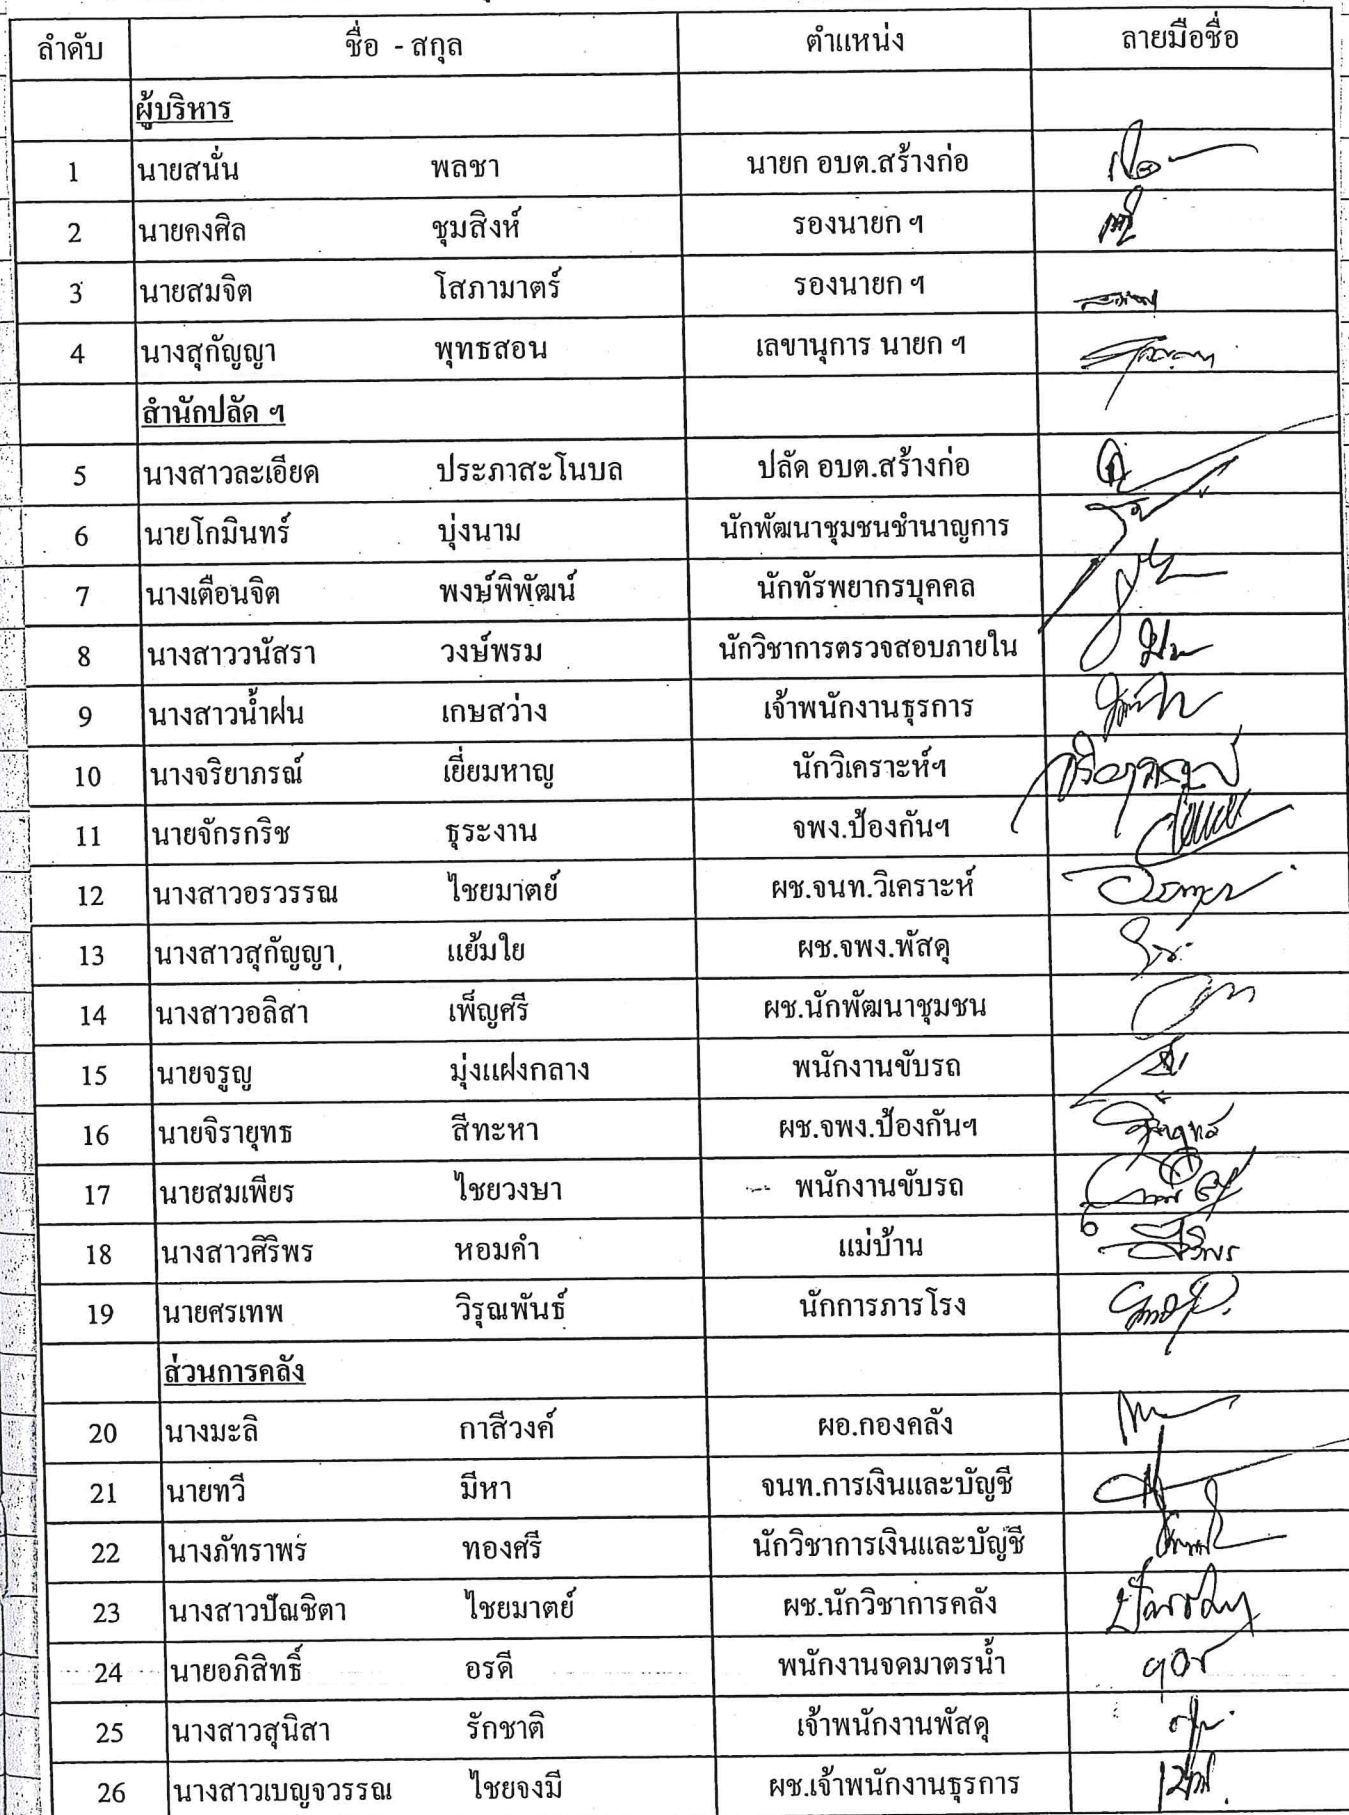 ลำดับ ชื่อ - สกุล ตำแหน่ง ลายมือชื่อ
ผู้บริหาร
1 นายสนั่น พลชา นายก อบต.สร้างก่อ
2 นายคงศิล ชุมสิงห์ รองนายก ฯ
3 นายสมจิต โสภามาตร์ รองนายก ฯ
4 นางสุกัญญา พุทธสอน เลขานุการ นายก ฯ
สำนักปลัด ฯ
5 นางสาวละเอียด ประภาสะโนบล ปลัด อบต.สร้างก่อ
6 นายโกมินทร์ บุ่งนาม นักพัฒนาชุมชนชำนาญการ
7 นางเตือนจิต พงษ์พิพัฒน์ นักทัรพยากรบุคคล
8 นางสาววนัสรา วงษ์พรม นักวิชาการตรวจสอบภายใน
9 นางสาวน้ำฝน เกษสว่าง เจ้าพนักงานธุรการ
10 นางจริยาภรณ์ เยี่ยมหาญ นักวิเคราะห์ฯ
11 นายจักรกริช ธุระงาน จพง.ป้องกันฯ
12 นางสาวอรวรรณ ไชยมาตย์ ผช.จนท.วิเคราะห์
13 นางสาวสุกัญญา แย้มใย ผช.จพง.พัสดุ
14 นางสาวอลิสา เพ็ญศรี ผช.นักพัฒนาชุมชน
15 นายจรูญ มุ่งแฝงกลาง พนักงานขับรถ
16 นายจิรายุทธ สีทะหา ผช.จพง.ป้องกันฯ
17 นายสมเพียร ไชยวงษา พนักงานขับรถ
18 นางสาวศิริพร หอมคำ แม่บ้าน
19 นายศรเทพ วิรุณพันธ์ นักการภารโรง
ส่วนการคลัง
20 นางมะลิ กาสีวงค์ ผอ.กองคลัง
21 นายทวี มีหา จนท.การเงินและบัญชี
22 นางภัทราพร ทองศรี นักวิชาการเงินและบัญชี
23 นางสาวปัณชิตา ไชยมาตย์ ผช.นักวิชาการคลัง
24 นายอภิสิทธิ์ อรดี พนักงานจดมาตรน้ำ
25 นางสาวสุนิสา รักชาติ เจ้าพนักงานพัสดุ
26 นางสาวเบญจวรรณ ไชยจงมี ผช.เจ้าพนักงานธุรการ